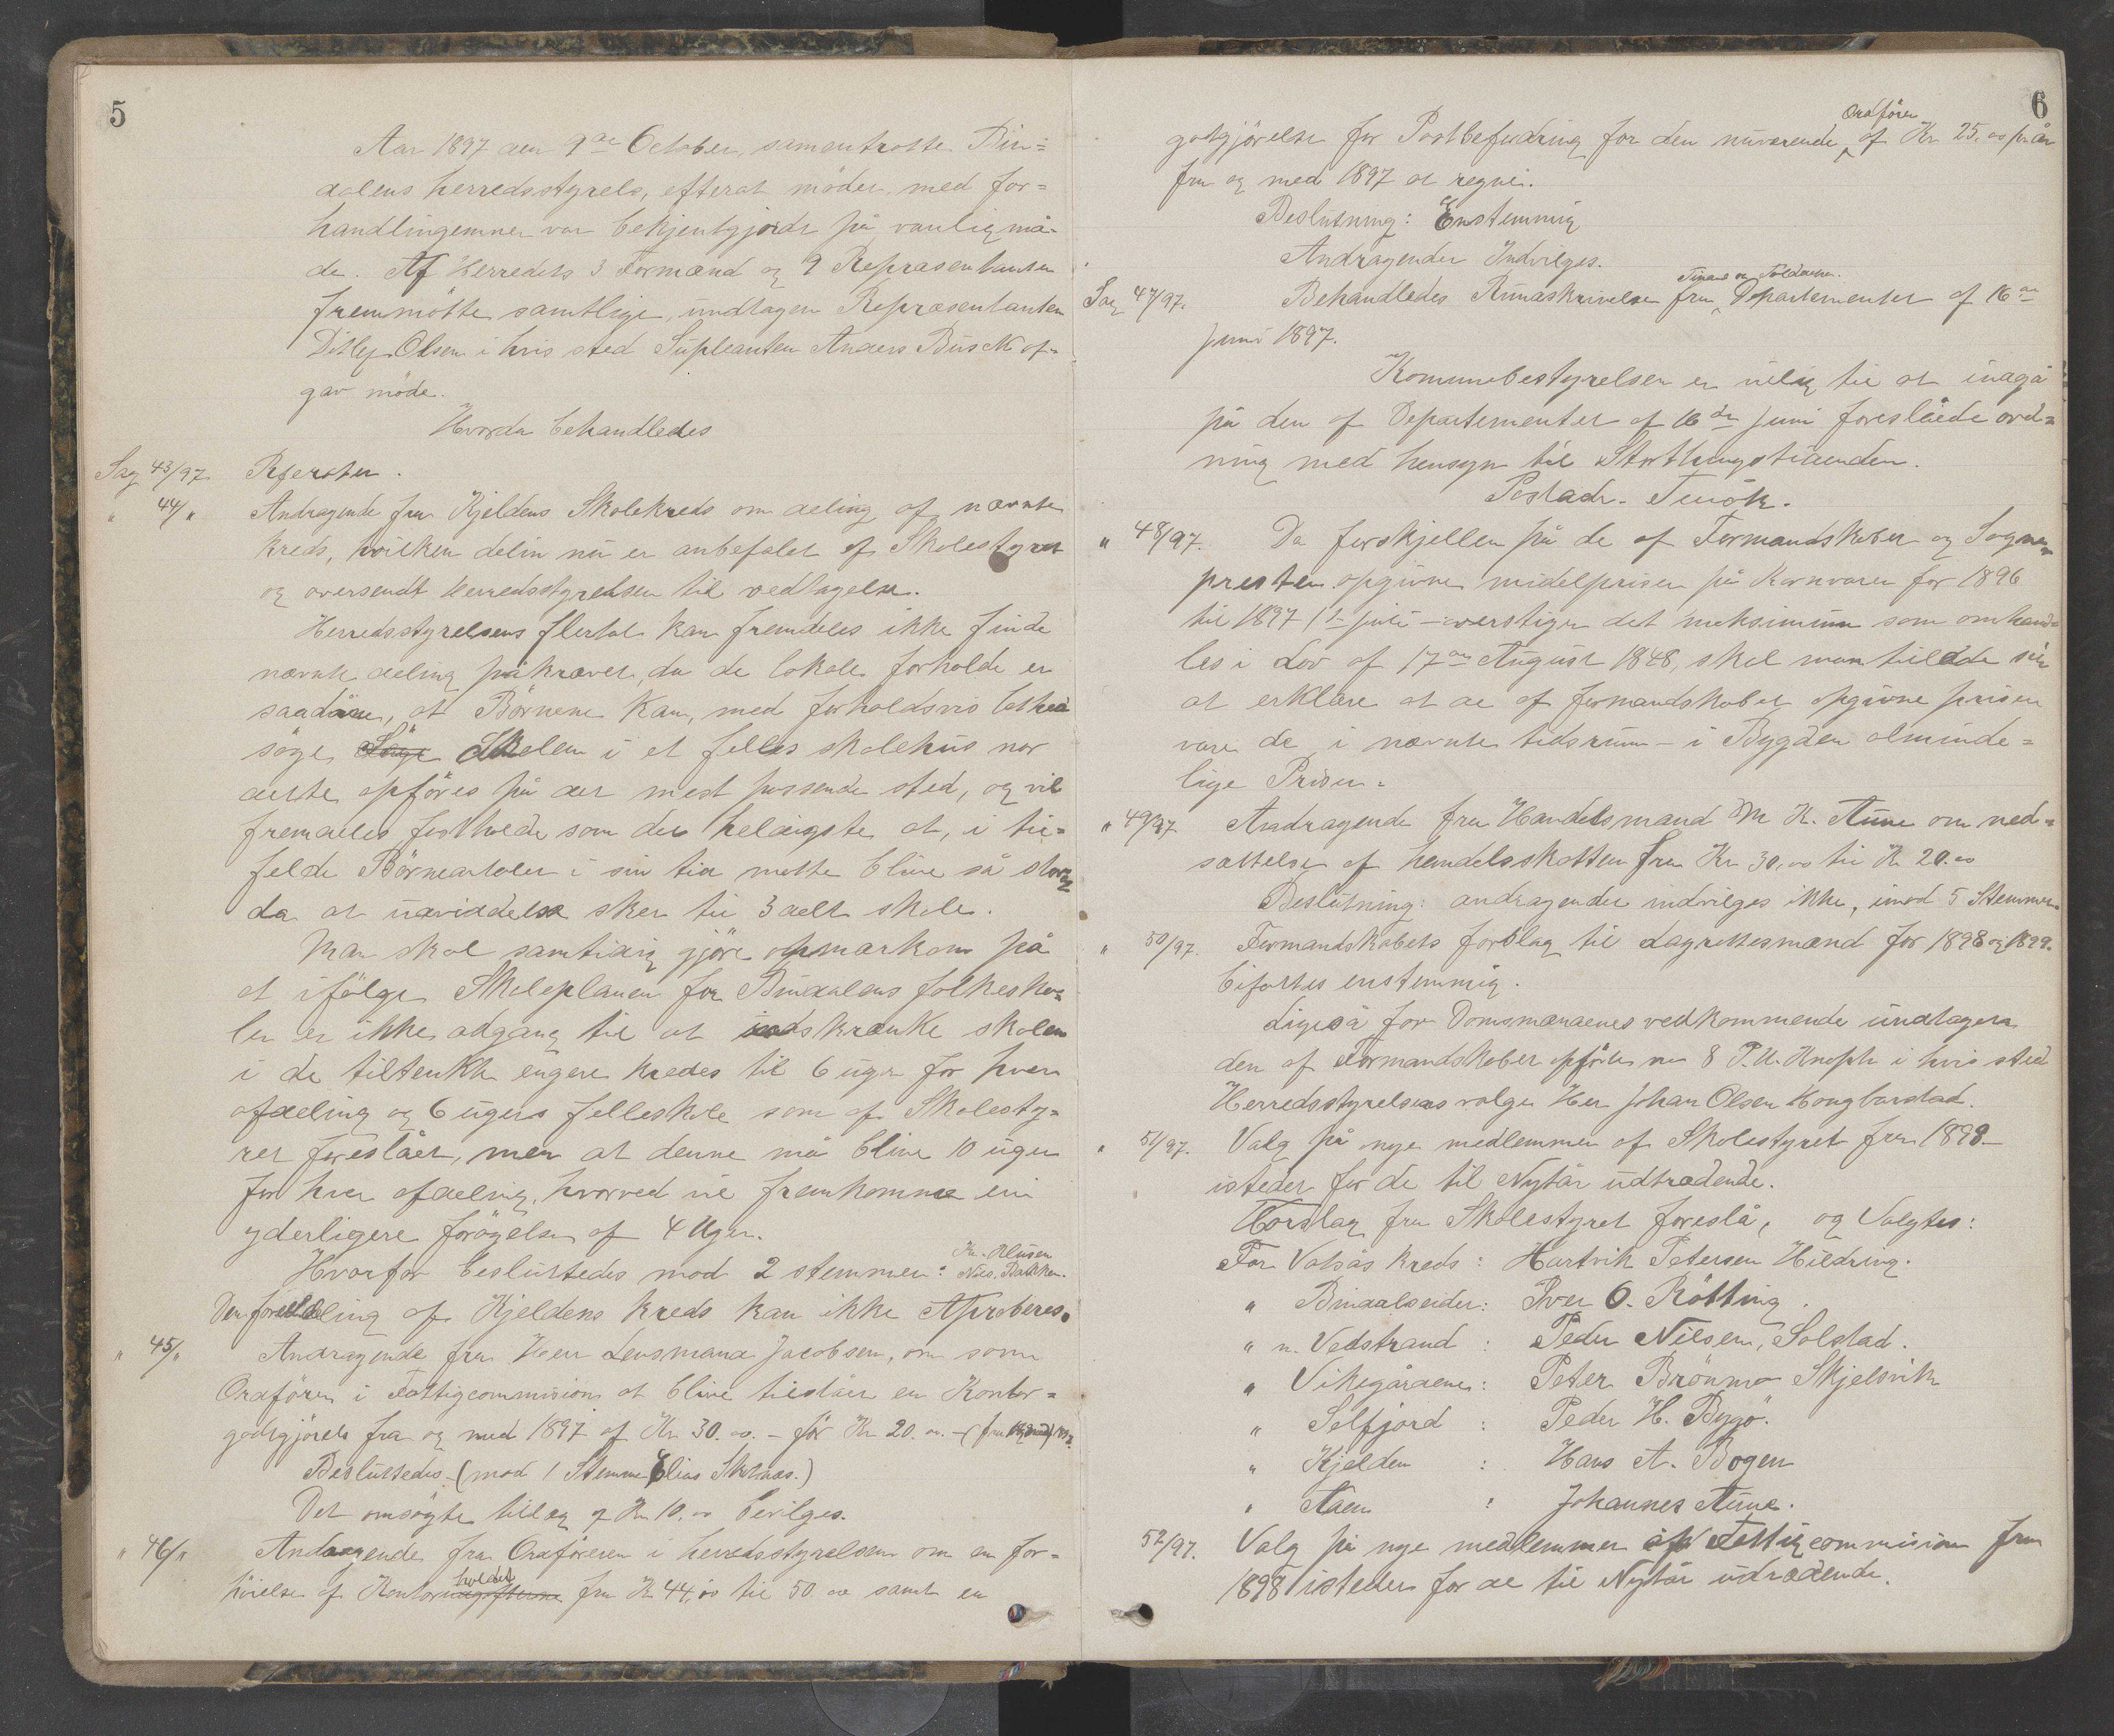 5
Aar 1897 den 9de October, samentrotte Bin=
dalens herredsstyrels, efterat mödet med for=
handlingemner var bekjentgjordt på vanlig må-
de. Af Herredets 3 Formænd og 9 Repræsentanter
fremmötte samtlige, undtagen Repræsentanten
Ditlef Olsen i hvis sted Supleanten Anders Busch af-
gav möde.
Hvorda behandledes
Sag 43/97. Referater.
" 44/" Andragende fra Kjeldens Skolekreds om deling af nævnte
kreds, hvilken delin nu er anbefalet af Skolestyret
og oversendt Herredsstyrelsen til vedtagelse.
Herredsstyrelsens flertal kan fremdeles ikke finde
nævnte deling påkrævet, da de lokale forholde er
saadane, at Börnene kan, med forholdsvis lethed
söge Söge Skolen i et felles skolehus nor
dette opföres på det mest passende sted, og vil
fremdeles fastholde som det heldigste at, i til=
felde Börneantalet i sin tid måtte blive så stort
da at udviddelse sker til 3 delt skole.
Man skal samtidig gjöre opmærksom på
at ifölge Skoleplanen for Bindalens folkesko=
ler er ikke adgang til at indskrænke skolen
i de tiltenkte engere kredse til 6 uger for hver
afdeling og 6 ugers felleskole som af Skolesty=
ret foreslået, men at denne må blive 10 uger
for hver afdeling, hvorved vil fremkomme en
yderligere forögelse af 4 Uger.
Hvorfor besluttedes mod 2 stemmer: Nils Bakken.
Den deling af Kjeldens kreds kan ikke Aproberes.
" 45/" Andragende fra Herr Lensmand Jacobsen, om som
Ordförer i Fattigcommision at blive tilstået en Kontor=
godtgjörels fra og med 1897 af Kr 30.00. - för Kr 20.00. -
Besluttedes (mod 1 Stemme Elias Skotnes.)
Det omsögte tilæg af Kr 10.00 bevilges.
" 46/" Andragende fra Ordföreren i herredsstyrelsen om en for=
höielse af Kontorudgifterne holdet fra Kr 44,00 til 50.00 samt en
6
godtgjörelse for Postbefordring for den nuværende Ordförer af Kr 25.00 pr år
fra og med 1897 at regne.
Beslutning: Enstemmig
Andragendet Indvilges.
Sag 47/97. Behandledes Rundskrivelse fra Finans og Tolddepartementet af 16de
Juni 1897.
Komunebestyrelsen er villig til at indgå
på den af Departementet af 16de Juni foreslåede ord=
ning med hensyn til Storthingstidenden.
Postadr. Terråk.
" 48/97. Da forskjellen på de af Formandskabet og Sogne-
presten opgivne midelpriser på Kornvarer for 1896
til 1897 1ste juli - overstiger det maksimum som omhand=
les i Lov af 17de August 1848, skal man tillade sig
at erklære at de af formandskabet opgivne priser
vare de i nævnte tidsrum - i Bygden alminde=
lige Priser.
" 49/97. Andragende fra Handelsmand M K. Aune om ned=
sættelse af handelsskatten fra Kr 30,00 til Kr 20.00
Beslutning: andragendet indvilges ikke, imod 5 Stemmer.
" 50/97. Formandskabets forslag til Lagrettesmænd for 1898 og 1899.
bifaltes enstemmig.
Ligeså for Domsmændenes vedkommende undtagen
den af Formandskabet opförte no 8 P. U. Knoph i hvis sted
Herredsstyrelsens valge Her Johan Olsen Kongbarstad.
" 51/97. Valg på nye medlemmer af Skolestyret fra 1898
istedet for de til Nytår udtrædende.
Forslag fra Skolestyret foreslå, og Valgtes:
For Vatsås kreds: Hartvik Petersen Hildring.
" Bindalseidet: Iver O. Rötting.
" n. Vedstrand: Peder Nilsen, Solstad.
" Vikegårdene: Peter Brönmo Skjelsvik
" Selfjord: Peder H. Bygö.
" Kjelden: Hans A. Bogen
" Aaen: Johannes Aune.
52/97. Valg på nye medlemmer af Fattigcommision fra
1898 istedet for de til Nytår udrædende.